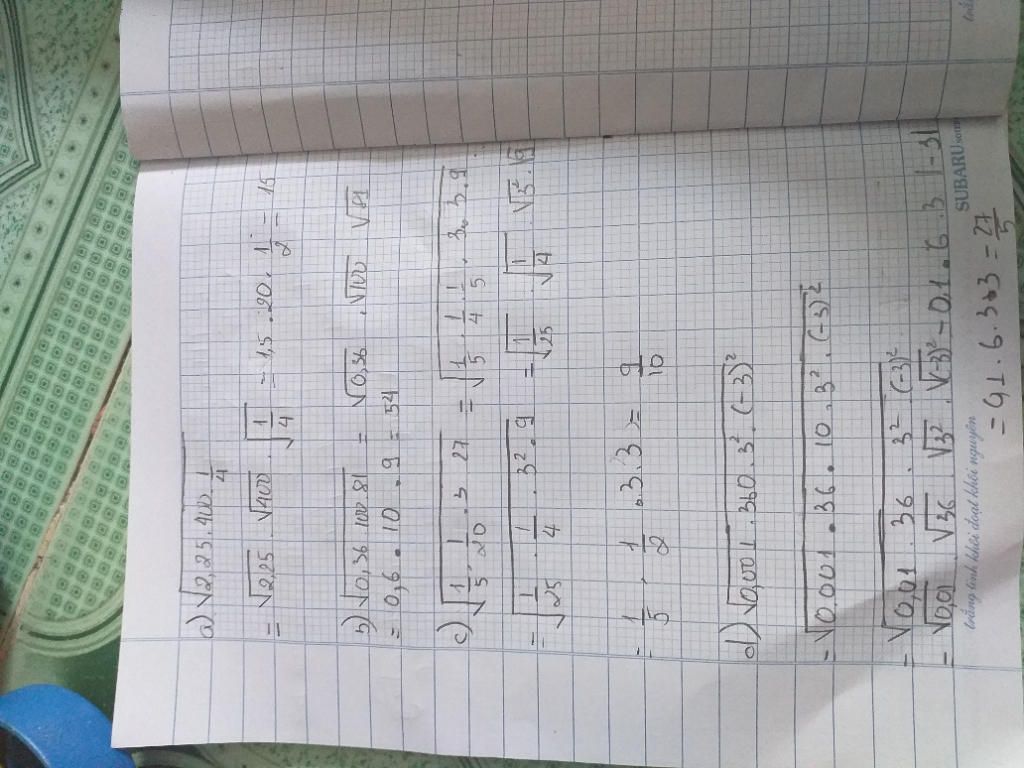 a) √2,25.400.1/4
= √2,25 . √400 . √1/4 = 1,5 . 20 . 1/2 = 15
b) √0,36.100.81 = √0,36 . √100 . √81
= 0,6 . 10 . 9 = 54
c) √1/5 . 1/20 . 3 . 27 = √1/5 . 1/4 . 1/5 . 3 . 3 . 9
= √1/25 . 1/4 . 3² . 9 = √1/25 . √1/4 . √3² .
= 1/5 . 1/2 . 3 . 3 = 9/10
d) √0,001 . 360 . 3² . (-3)²
= √0,001 . 36 . 10 . 3² . (-3)²
= √0,01 . 36 . 3² . (-3)²
= √0,01 . √36 . √3² . √(-3)² = 0,1 . 6 . 3 |-3|
= 0,1 . 6 . 3 . 3 = 27/5
trắng tinh khôi đoạt khôi nguyên
SUBARU